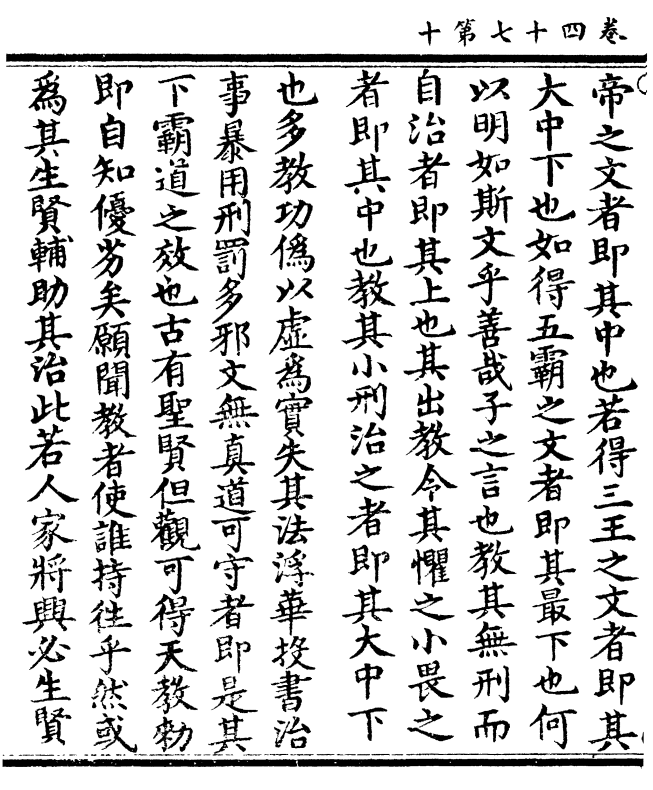 卷四十七第十
帝之文者即其中也若得三王之文者即其
大中下也如得五霸之文者即其最下也何
以明如斯文乎善哉子之言也教其無刑而
自治者即其上也其出教令其懼之小畏之
者即其中也教其小刑治之者即其大中下
也多教功僞以虛爲實失其法浮華投書治
事暴用刑罰多邪文無真道可守者即是其
下霸道之效也古有聖賢但觀可得天教勑
即自知優劣矣願聞教者使誰持往乎然或
爲其生賢輔助其治此若人家將興必生賢